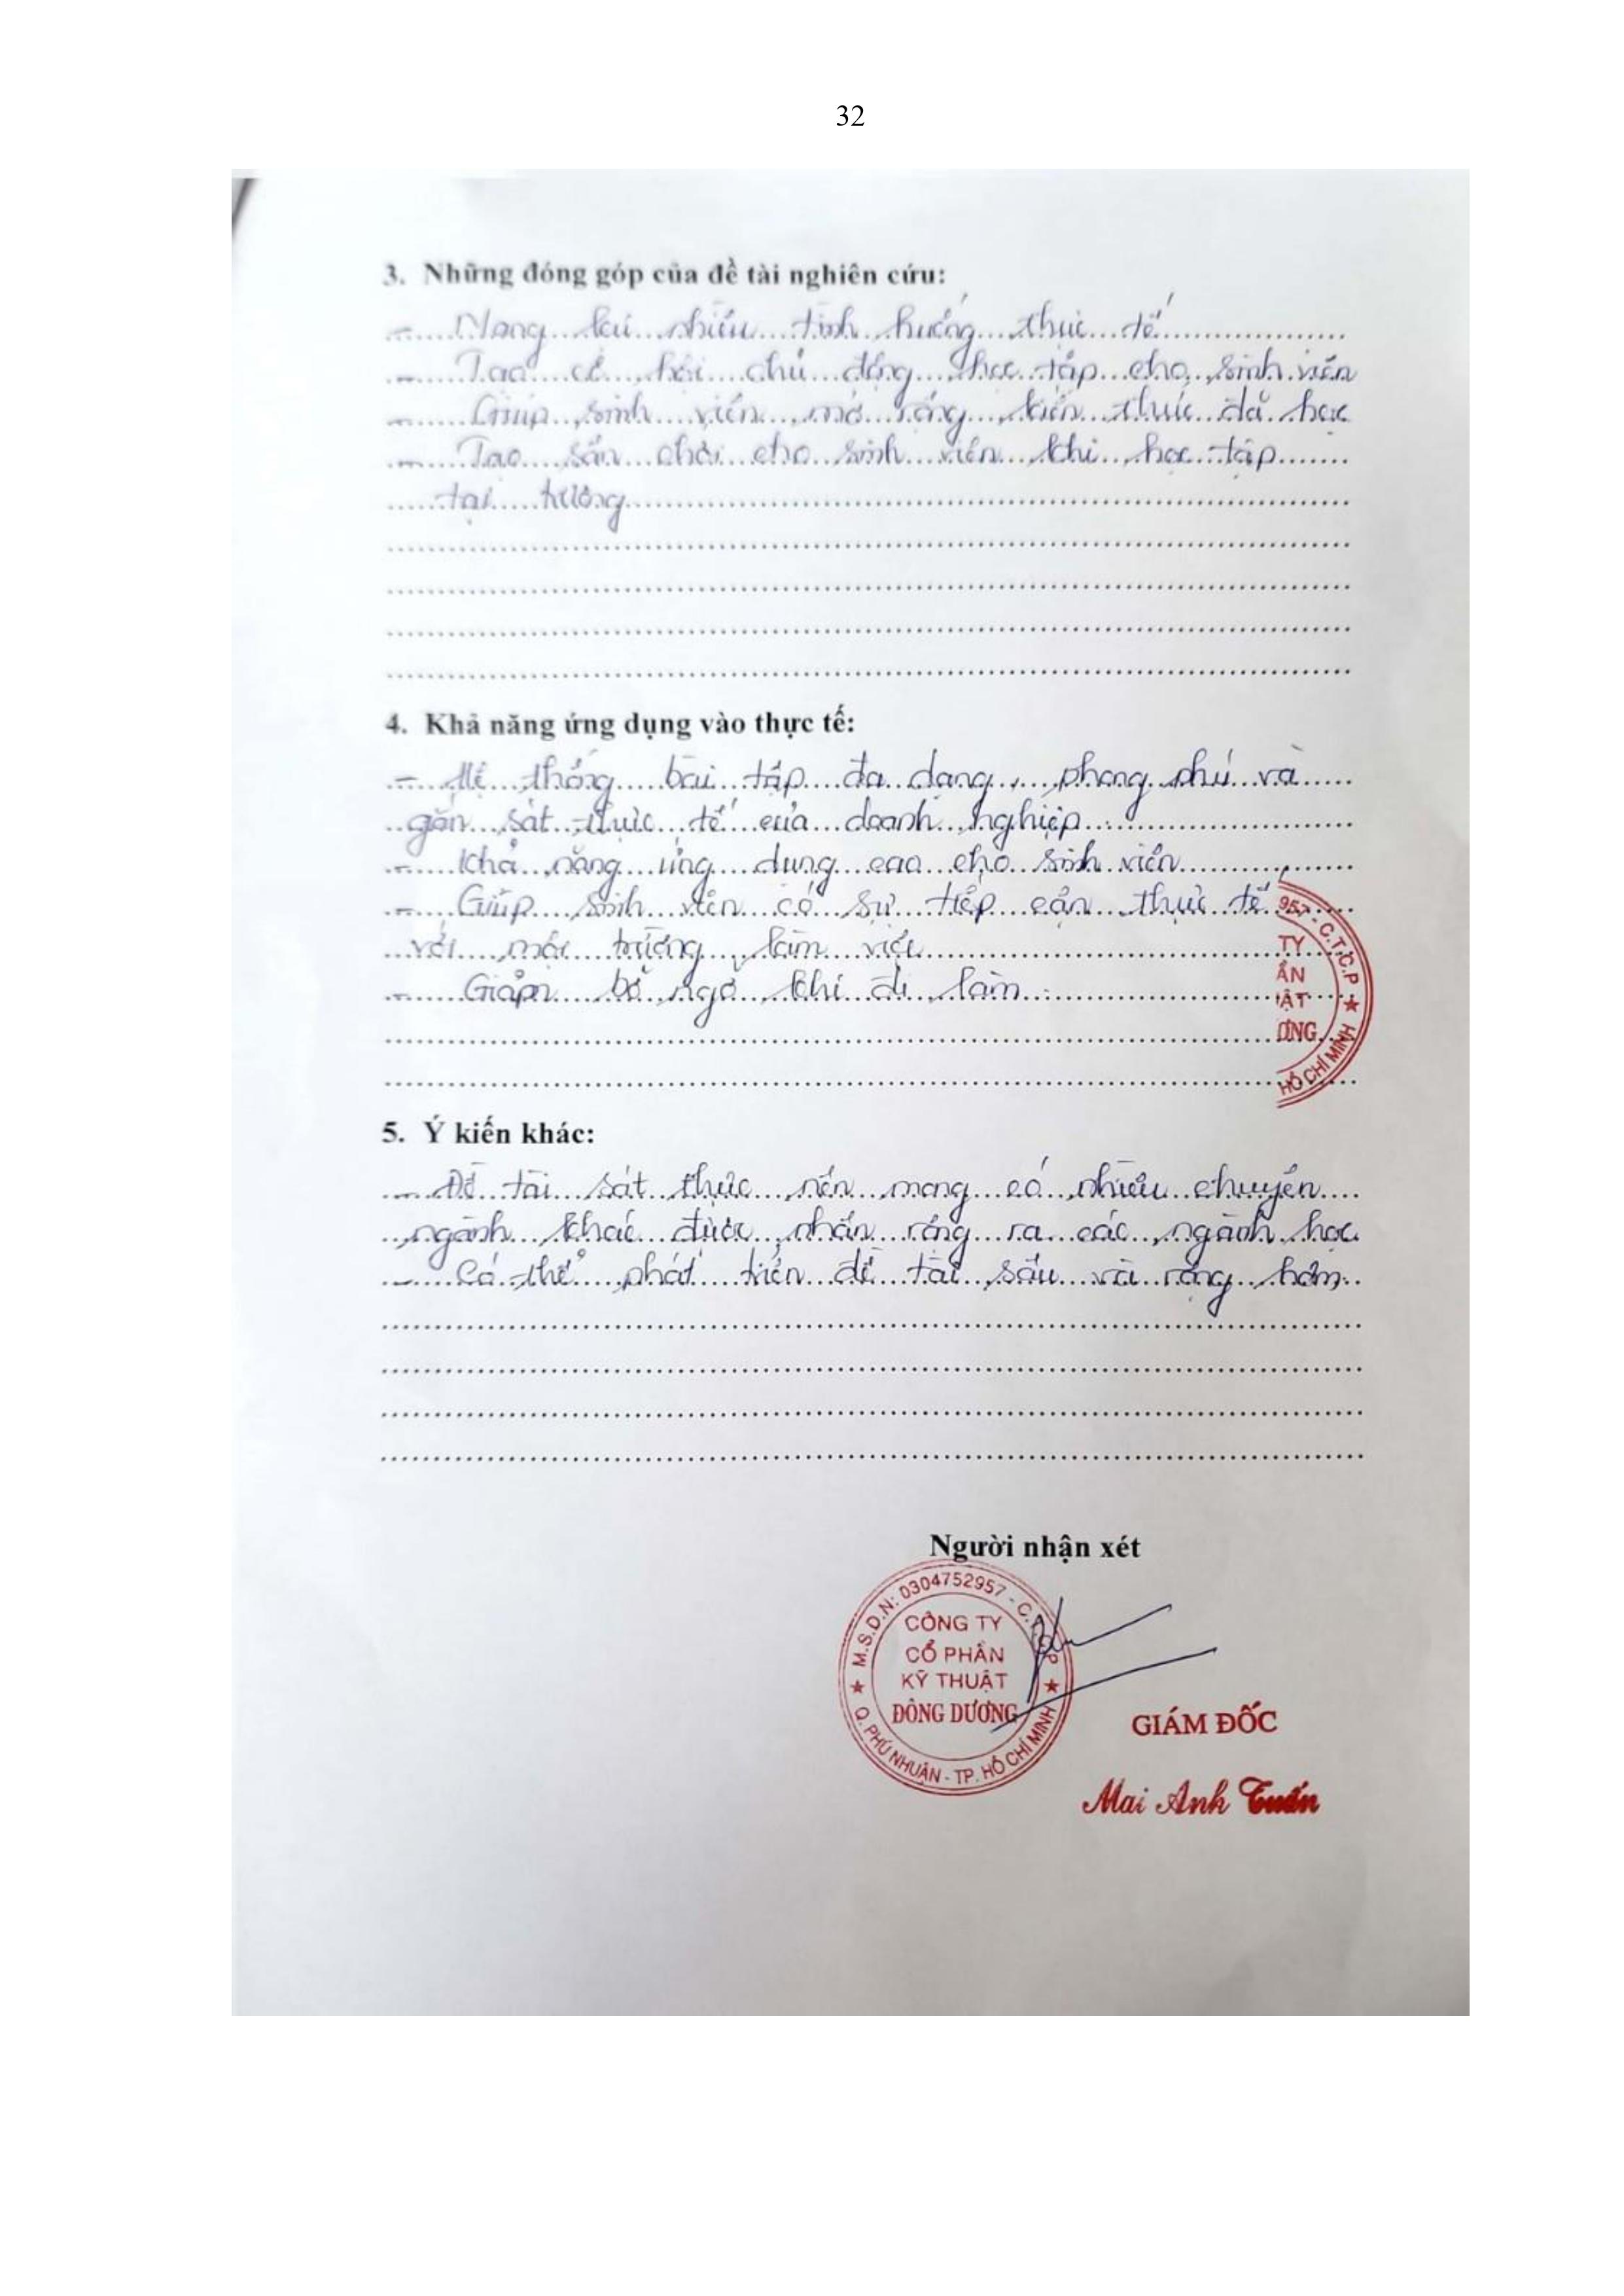 32
3. Những đóng góp của đề tài nghiên cứu:
- Mang lại nhiều tình huống thực tế
- Tạo cơ hội chủ động học tập cho sinh viên
- Giúp sinh viên mở rộng kiến thức đã học
- Tạo sân chơi cho sinh viên khi học tập
tại trường
4. Khả năng ứng dụng vào thực tế:
- Hệ thống bài tập đa dạng, phong phú và
gần sát thực tế của doanh nghiệp.
- Khả năng ứng dụng cao cho sinh viên
- Giúp sinh viên có sự tiếp cận thực tế
với môi trường làm việc
- Giảm bỡ ngỡ khi đi làm.
957 - C.T.C.P ★
TY
ẦN
UẬT
ƯƠNG
HỒ CHÍ MINH
5. Ý kiến khác:
- Đề tài sát thực nên mong có nhiều chuyên
ngành khác được nhân rộng ra các ngành học
- Có thể phát triển đề tài sâu và rộng hơn.
Người nhận xét
★ M.S.D.N: 0304752957 - C.T.C.P ★
CÔNG TY
CỔ PHẦN
KỸ THUẬT
ĐÔNG DƯƠNG
Q. PHÚ NHUẬN - TP. HỒ CHÍ MINH
GIÁM ĐỐC
Mai Anh Tuấn